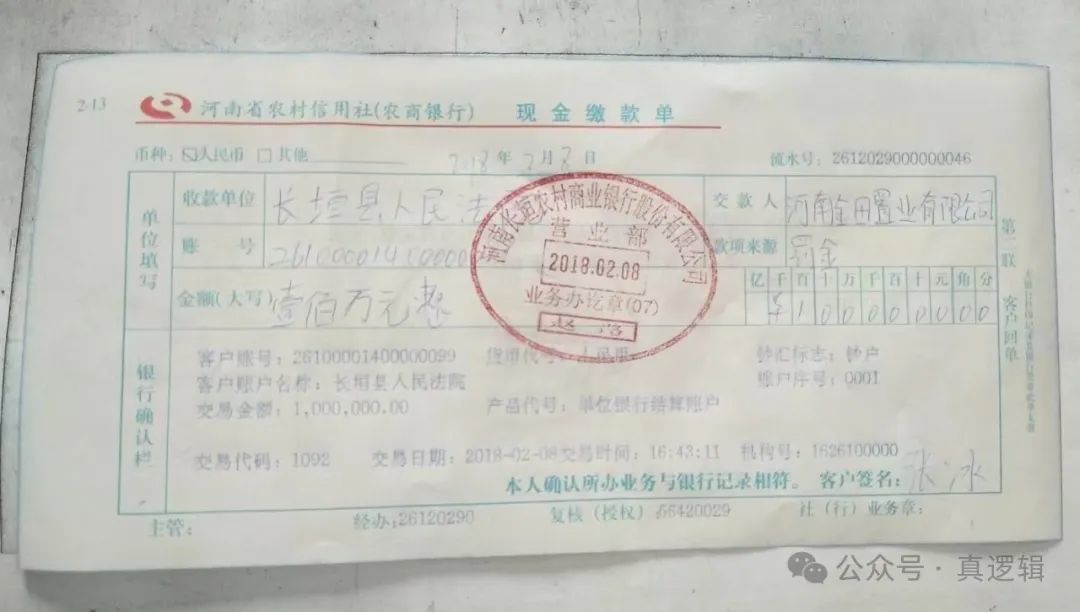 2-13
河南省农村信用社(农商银行) 现金缴款单
币种：☑人民币 □其他 2018年2月8日 流水号：2612029000000046
单位填写
收款单位 长垣县人民法
交款人 河南金田置业有限公司
账号 26100001400000
款项来源 罚金
金额(大写) 壹佰万元整
亿千百十万千百十元角分
¥100000000
河南长垣农村商业银行股份有限公司
营业部
2018.02.08
业务办讫章(07)
银行确认栏
客户账号：26100001400000099 货币代号：人民币 钞汇标志：钞户
客户账户名称：长垣县人民法院 账户序号：0001
交易金额：1,000,000.00 产品代号：单位银行结算账户
交易代码：1092 交易日期：2018-02-08 交易时间：16:43:11 机构号：1626100000
本人确认所办业务与银行记录相符。 客户签名：张冰
主管： 经办:26120290 复核（授权）:56420029 社（行）业务章：
第二联 客户回单
公众号·真逻辑